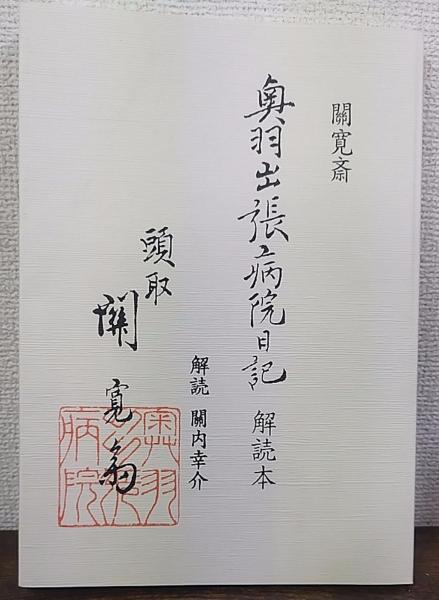 關寛斎
奥羽出張病院日記 解読本
解読 關内幸介
頭取
關寛斎
奥羽
出張
病院